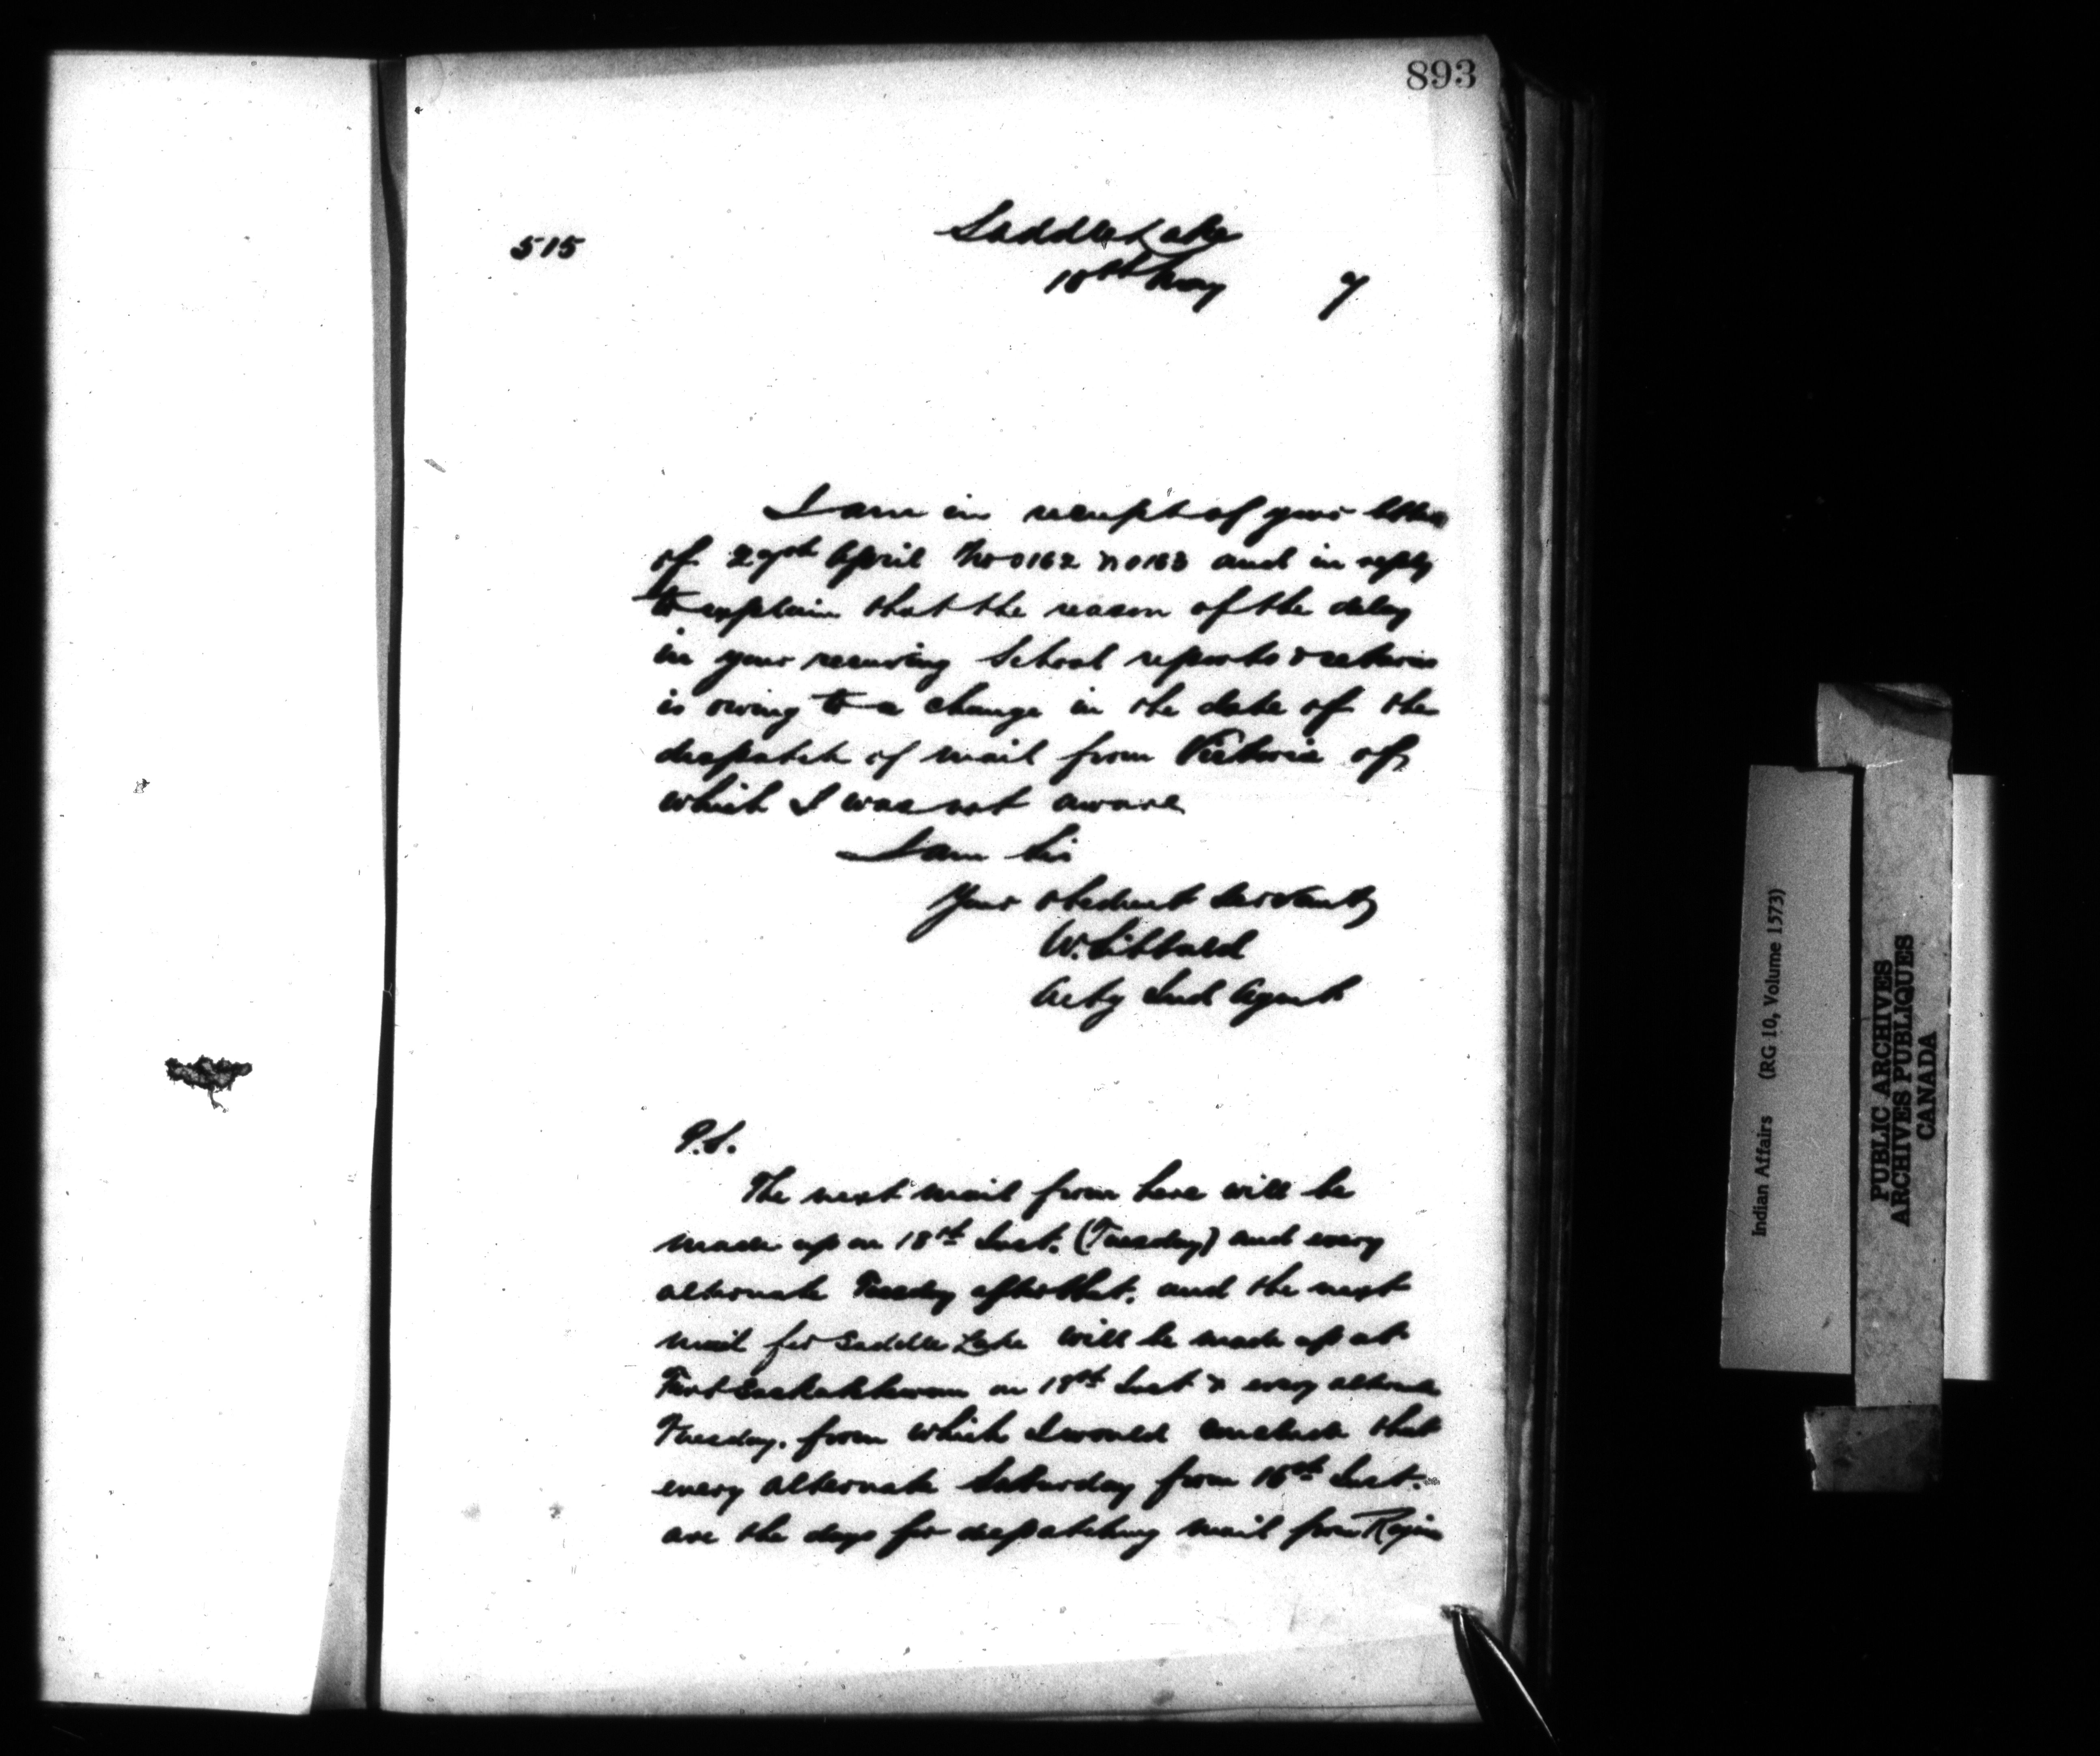 893
515
Saddle Lake
10th May 7
I am in receipt of your letter
of 29th April No 0162 & 0163 and in reply
to explain that the reason of the delay
in your receiving School reports & returns
is owing to a change in the date of the
despatch of mail from Victoria of
which I was not aware
I am Sir
Your obedient Servant
W. Sibbald
Actg Ind Agent
P.S.
The next mail from here will be
made up on 18th Inst. (Tuesday) and every
alternate Tuesday after that. and the next
mail for Saddle Lake will be made up at
Fort Saskatchewan on 18th Inst & every alternate
Tuesday. from which I would conclude that
every alternate Saturday from 15th Inst.
are the days for despatching mail from Regina
Indian Affairs (RG 10, Volume 1573)
PUBLIC ARCHIVES
ARCHIVES PUBLIQUES
CANADA